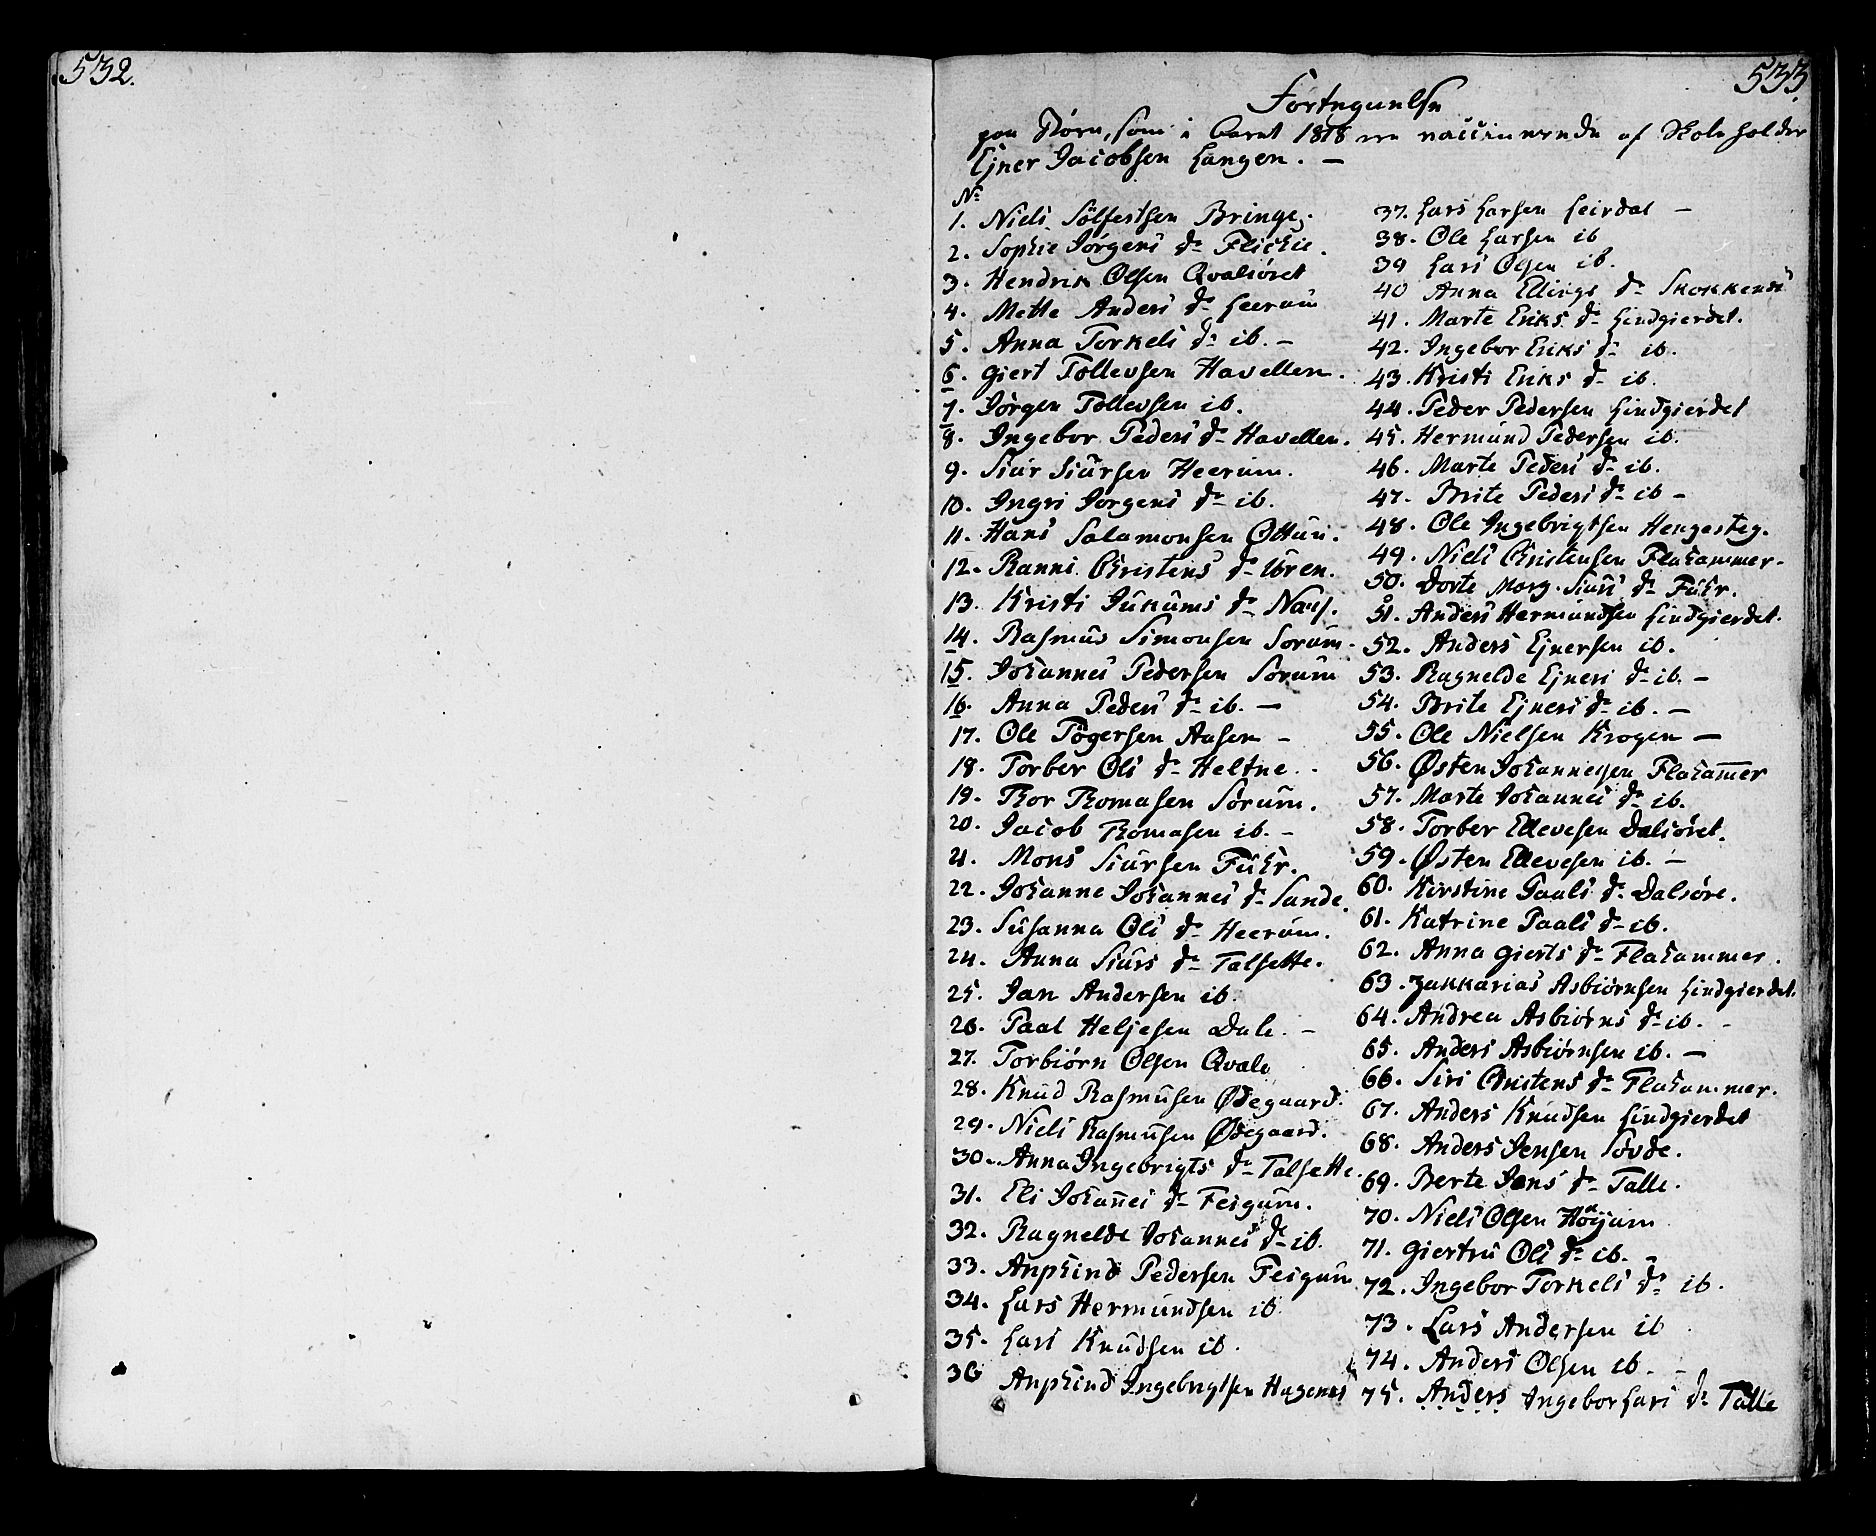 532.
533
Fortegnelse
paa Børn, som i Aaret 1818 ere vaccinerede af Skoleholder
Ejner Jacobsen Hangen. —
No
1. Niels Sølfestsen Bringe.
2. Sophie Jörgens dr Flickie.
3. Hendrik Olsen Qvalsöret
4. Mette Anders dr Leerum
5. Anna Torkels dr ib. —
6. Giert Tollevsen Havellen.
7. Jörgen Tollevsen ib.
8. Ingebor Peders dr Havellen.
9. Siur Siursen Heerum.
10. Ingri Jörgens dr ib.
11. Hans Salamonsen Ottum.
12. Ranni Christens dr Uren.
13. Kristi Jukums dr Naes.
14. Rasmus Simonsen Sorum.
15. Johannes Pedersen Sorum
16. Anna Peders dr ib. —
17. Ole Tögersen Aasen —
18. Torber Ols dr Heltne.
19. Thor Thomasen Sörum.
20. Jacob Thomasen ib. —
21. Mons Siursen Fuhr.
22. Johanne Johannes dr Sande.
23. Susanna Ols dr Heerum.
24. Anna Siurs dr Talsette.
25. Jan Andersen ib.
26. Paal Heljesen Dale. —
27. Torbiörn Olsen Qvale
28. Knud Rasmusen Ødegaard.
29. Niels Rasmusen Ødegaard.
30. Anna Ingebrigts dr Talsette.
31. Eli Johañes dr Feigum.
32. Ragnelde Johannes dr ib.
33. Anphind Pedersen Feigum
34. Lars Hermundsen ib
35. Lars Knudsen ib.
36 Anphind Ingebrigtsen Hagenes
37. Lars Larsen Leirdal —
38. Ole Larsen ib
39 Lars Olsen ib.
40 Anna Ellings dr Skokkenes
41. Marte Eriks dr Lindgierdet.
42. Ingebor Eriks dr ib.
43. Kristi Eriks dr ib.
44. Peder Pedersen Lindgierdet
45. Hermund Pedersen ib.
46. Marte Peders dr ib.
47. Brite Peders dr ib —
48. Ole Ingebrigtsen Hengesteg.
49. Niels Christensen Flahammer.
50. Dorte Marg. Siurs dr Fuhr.
51. Anders Hermundsen Lindgierdet.
52. Anders Ejnersen ib.
53. Ragnelde Ejners dr ib. —
54. Brite Ejners dr ib. —
55. Ole Nielsen Krogen —
56. Østen Johannessen Flahammer
57. Marte Johannes dr ib.
58. Torber Ellevesen Dalsöret.
59. Østen Ellevesen ib. —
60. Kirstine Paals dr Dalsöre.
61. Katrine Paals dr ib.
62. Anna Gierts dr Flahammer.
63. Zakkarias Asbiörnsen Lindgierdet.
64. Andrea Asbiörns dr ib. —
65. Anders Asbiörnsen ib. —
66. Siri Christens dr Flahammer.
67. Anders Knudsen Lindgierdet
68. Anders Jensen Søvde.
69. Berte Jens dr Talle.
70. Niels Olsen Høyum
71. Giertru Ols dr ib. —
72. Ingebor Torkels dr ib.
73. Lars Andersen ib
74. Anders Olsen ib. —
75. Anders Ingebor Lars dr Talle